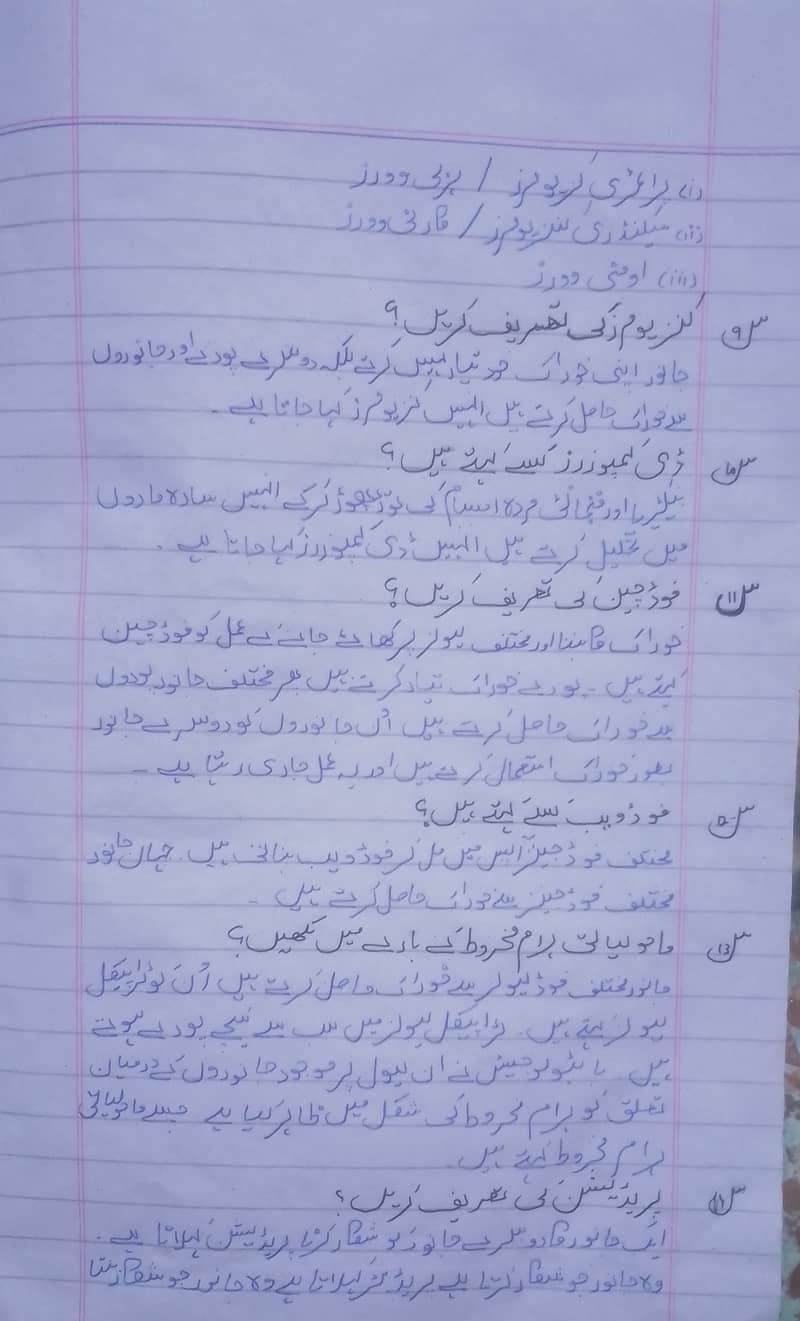 (i) پرائمری کنزیومرز / ہربی وورز
(ii) سیکنڈری کنزیومرز / کارنی وورز
(iii) اومنی وورز
س9 کنزیومرز کی تعریف کریں؟
جانور اپنی خوراک خود تیار نہیں کرتے بلکہ دوسرے پودے اور جانوروں
سے خوراک حاصل کرتے ہیں انہیں کنزیومرز کہا جاتا ہے۔
س10 ڈی کمپوزرز کسے کہتے ہیں؟
بیکٹیریا اور فنجائی مردہ اجسام کی توڑ پھوڑ کر کے انہیں سادہ مادوں
میں تحلیل کرتے ہیں انہیں ڈی کمپوزرز کہا جاتا ہے۔
س11 فوڈ چین کی تعریف کریں؟
خوراک کا بننا اور مختلف لیولز پر کھائے جانے کے عمل کو فوڈ چین
کہتے ہیں۔ پودے خوراک تیار کرتے ہیں پھر مختلف جانور پودوں
سے خوراک حاصل کرتے ہیں اُن جانوروں کو دوسرے جانور
بطور خوراک استعمال کرتے ہیں اور یہ عمل جاری رہتا ہے۔
فوڈ ویب کسے کہتے ہیں؟
مختلف فوڈ چینز آپس میں مل کر فوڈ ویب بناتی ہیں۔ جہاں جانور
مختلف فوڈ چینز سے خوراک حاصل کرتے ہیں۔
س13 ماحولیاتی ہرام مخروط کے بارے میں لکھیں؟
جانور مختلف فوڈ لیولز سے خوراک حاصل کرتے ہیں اُن کو ٹراپیکل
لیولز کہتے ہیں۔ ٹراپیکل لیولز میں سب سے نیچے پودے ہوتے
ہیں۔ بائیولوجیسٹ نے ان لیول پر موجود جانوروں کے درمیان
تعلق کو ہرام مخروط کی شکل میں ظاہر کیا ہے جسے ماحولیاتی
ہرام مخروط کہتے ہیں۔
پریڈیشن کی تعریف کریں؟
ایک جانور کا دوسرے جانور کو شکار کرنا پریڈیشن کہلاتا ہے۔
وہ جانور جو شکار کرتا ہے پریڈیٹر کہلاتا ہے وہ جانور جو شکار بنتا